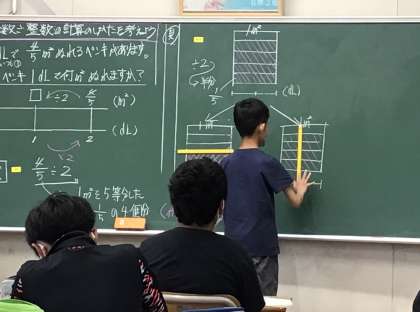 分数÷整数の計算のしかたを考えよう
dLで4/5m²ぬれるペンキがあります。
ペンキ1dLで何m²ぬれますか?
□ ÷2 4/5 (m²)
1 2 (dL)
÷2
4/5÷2
1m²を5等分した
1/5の4個分
1m²
÷2
半分
1/5
(dL)
1m²
1m²